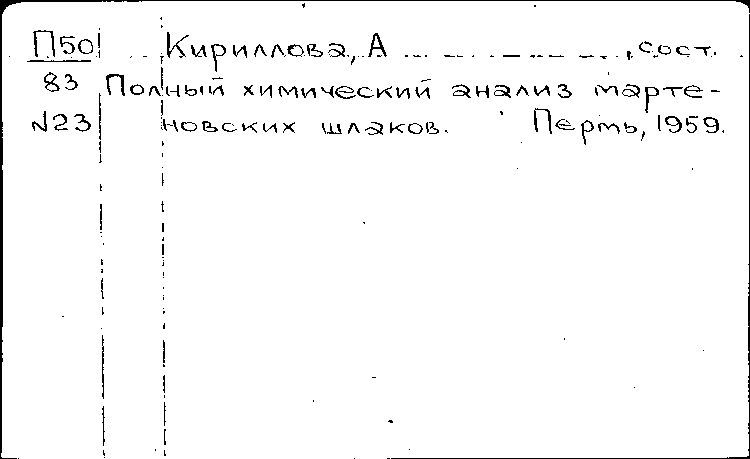 П50 Кириллова, А ... , сост.
83 Полный химический анализ марте-
N23 новских шлаков. Пермь, 1959.